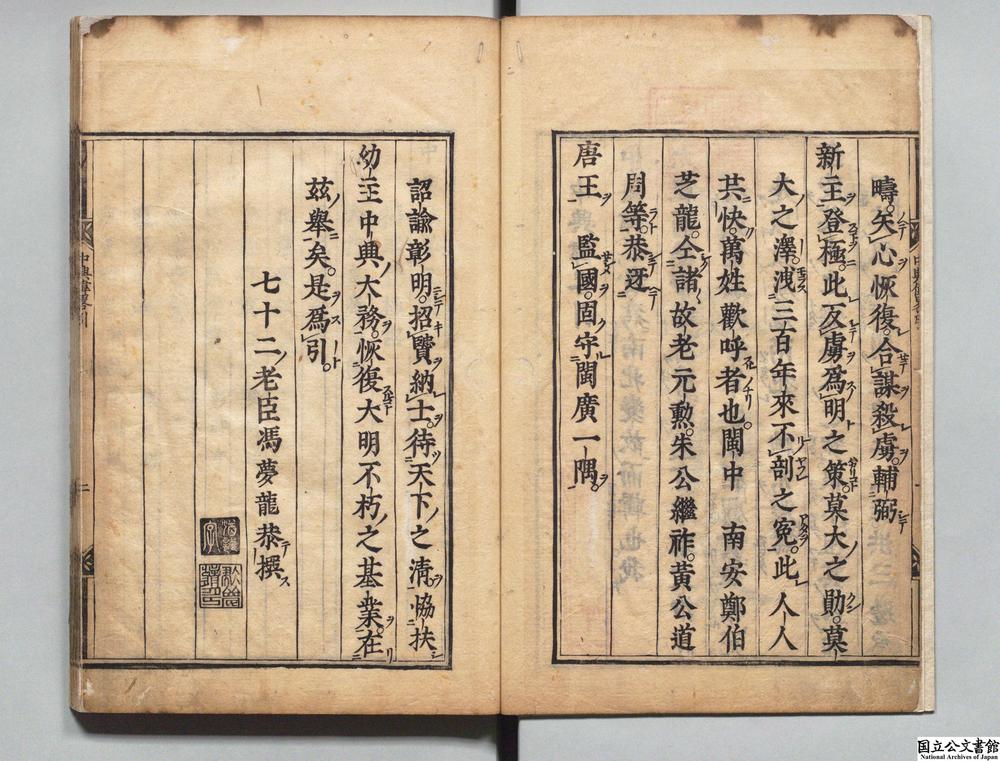 疇。矢心恢復。合謀殺虜。輔弼
新主登極。此反虜爲明之策。莫大之勛。莫
大之澤。洩三百年來不剖之冤。此人人
共快。萬姓歡呼者也。閩中 南安鄭伯
芝龍。仝諸故老元勲。朱公繼祚。黃公道
周等。恭迓
唐王 監國。固守閩廣一隅。
詔諭彰明。招賢納士。待天下之清。恊扶
幼主中興大務。恢復大明不朽之基業。在
玆舉矣。是爲引。
七十二老臣馮夢龍恭撰
国立公文書館
National Archives of Japan